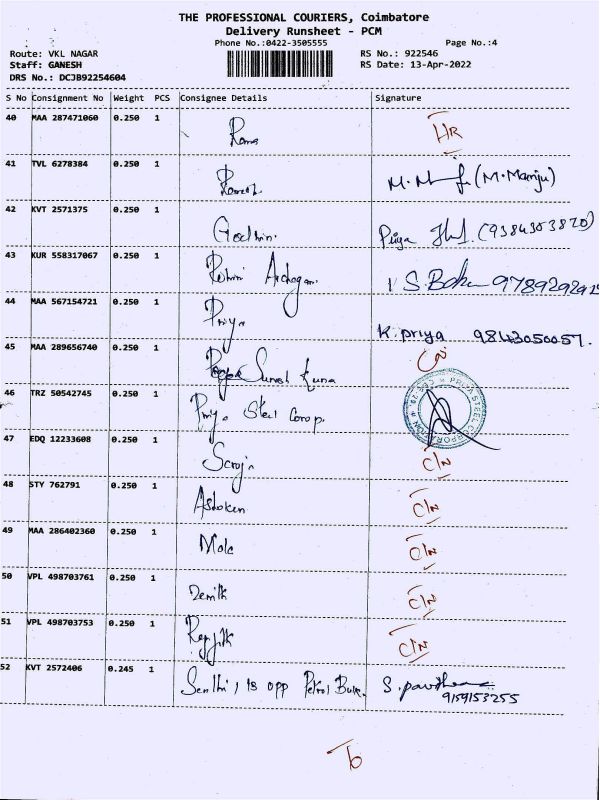 THE PROFESSIONAL COURIERS, Coimbatore
Delivery Runsheet - PCM
Phone No.:0422-3505555 Page No.:4
Route: VKL NAGAR RS No.: 922546
Staff: GANESH RS Date: 13-Apr-2022
DRS No.: DCJB92254604
S No Consignment No Weight PCS Consignee Details Signature
40 MAA 287471060 0.250 1 Rama HR
41 TVL 6278384 0.250 1 Ramesh (M.Manju)
42 KVT 2571375 0.250 1 Godhin. Priya (9384303820)
43 KUR 558317067 0.250 1 Roshni S. 9789292912
44 MAA 567154721 0.250 1 Priya K. priya 9843050057.
45 MAA 289656740 0.250 1 Suresh Kuma
46 TRZ 50542745 0.250 1 Priya Steel Corop. PRIYA STEEL CORPORATION
47 EDQ 12233608 0.250 1 Saroja C/N
48 STY 762791 0.250 1 Ashoken C/N
49 MAA 286402360 0.250 1 Mala C/N
50 VPL 498703761 0.250 1 C/N
51 VPL 498703753 0.250 1 C/N
52 KVT 2572406 0.245 1 Senthil, 18 opp Petrol Bunk. S. 9159153255
To